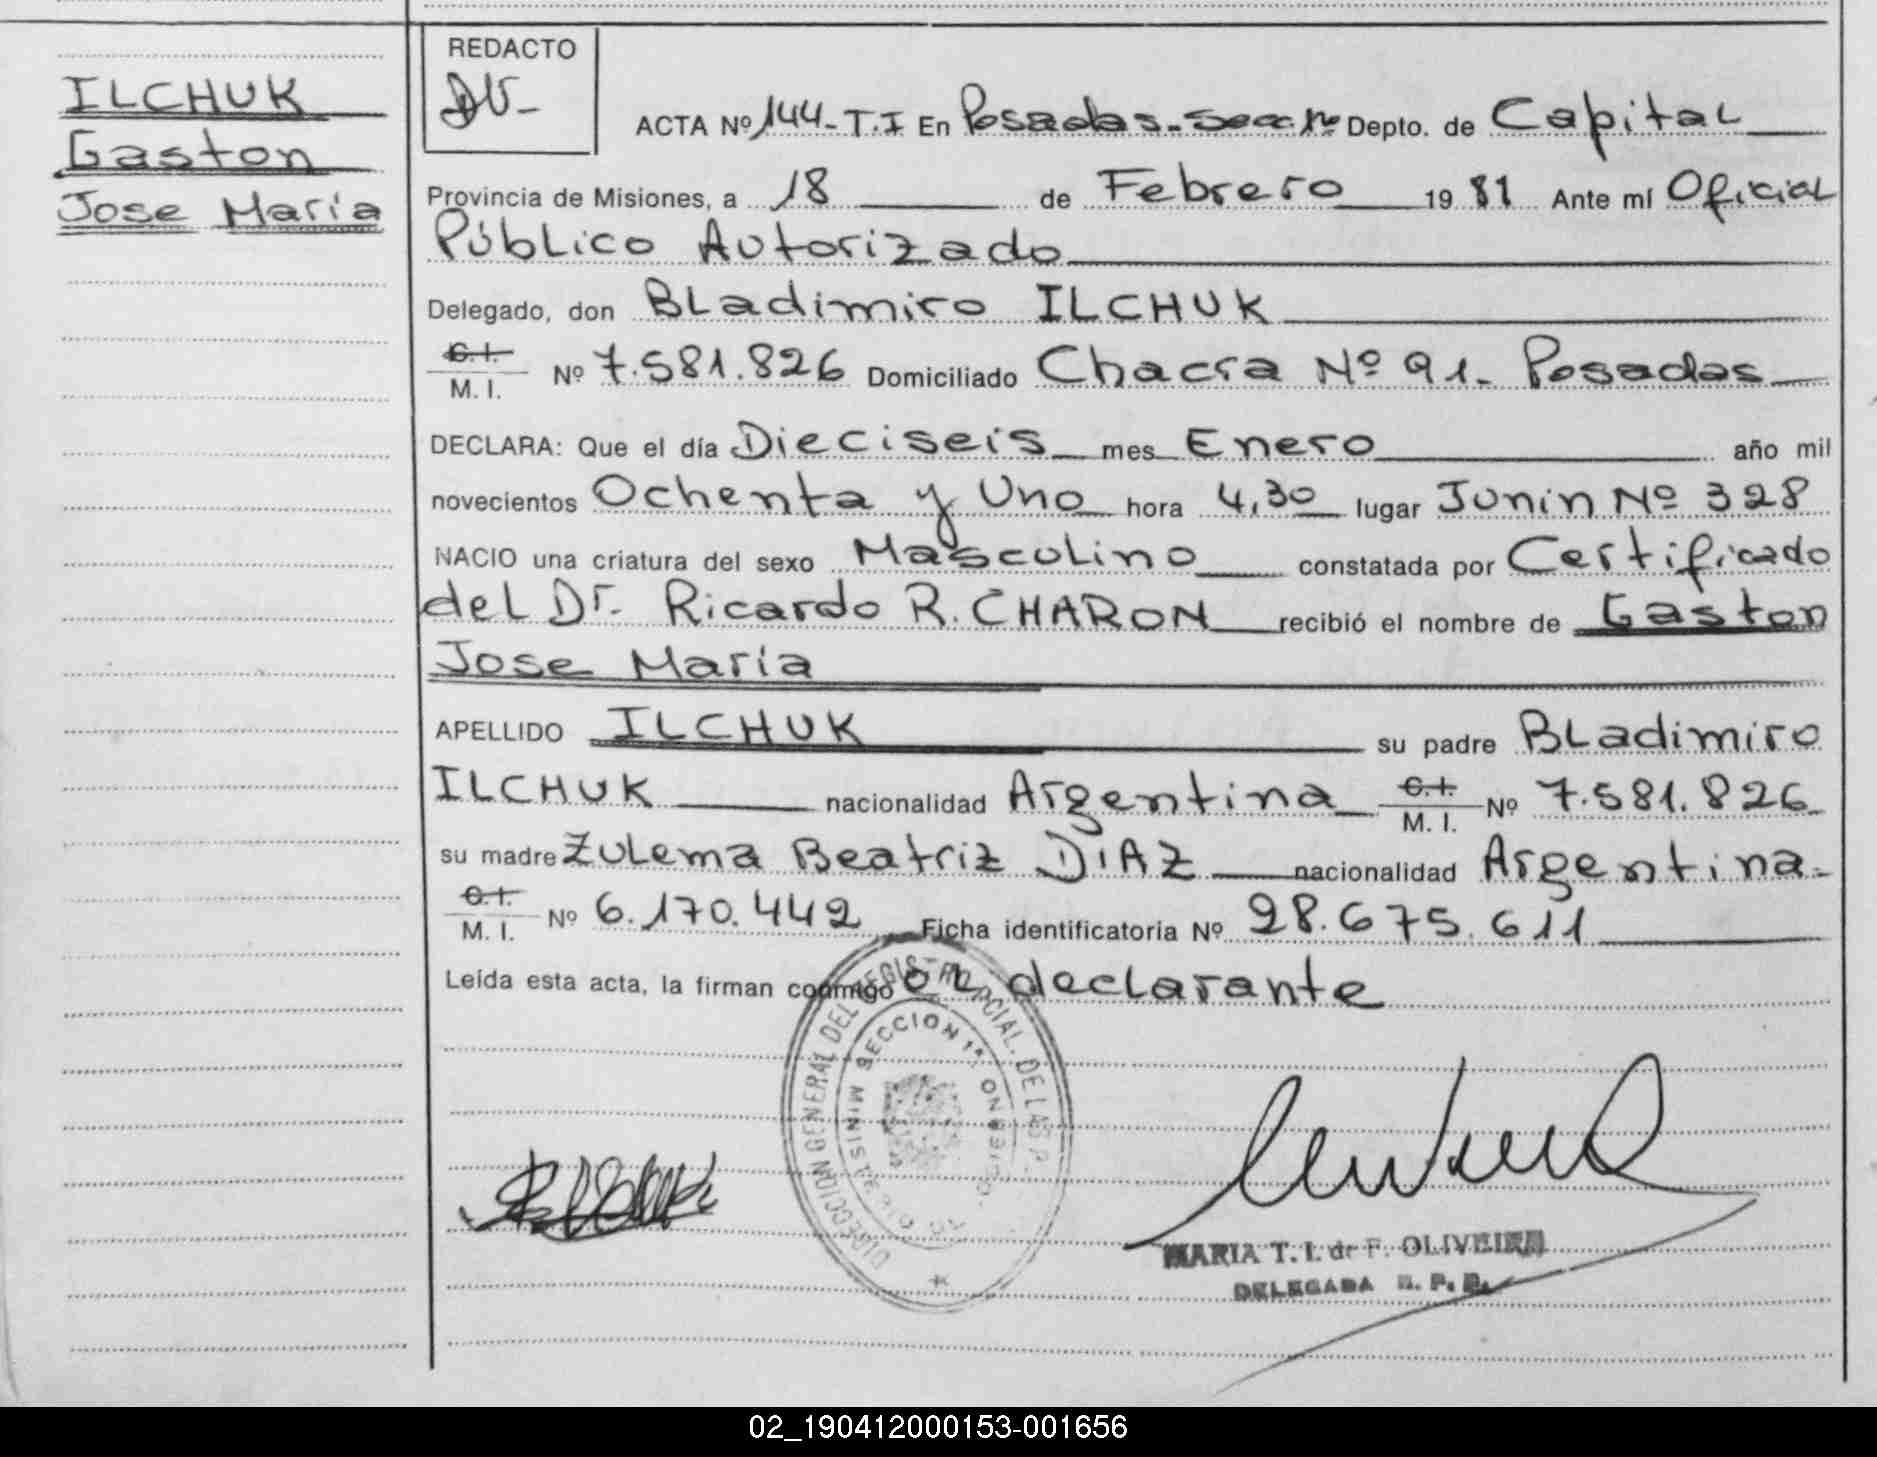 ILCHUK
Gaston
Jose María
REDACTO
ACTA Nº 144-T.I En Posadas-Secc. 1ª Depto. de Capital
Provincia de Misiones, a 18 de Febrero 1981 Ante mí Oficial
Público Autorizado
Delegado, don BLadimiro ILCHUK
C.I. M.I. Nº 7.581.826 Domiciliado Chacra Nº 91- Posadas
DECLARA: Que el día Dieciseis mes Enero año mil
novecientos Ochenta y Uno hora 4,30 lugar Junin Nº 328
NACIO una criatura del sexo Masculino constatada por Certificado
del Dr. Ricardo R. CHARON recibió el nombre de Gaston
Jose María
APELLIDO ILCHUK su padre BLadimiro
ILCHUK nacionalidad Argentina C.I. M.I. Nº 7.581.826
su madre Zulema Beatriz DIAZ nacionalidad Argentina-
C.I. M.I. Nº 6.170.442 Ficha identificatoria Nº 28.675.611
Leída esta acta, la firman conmigo el declarante
DIRECCION GENERAL DEL REGISTRO PCIAL. DE LAS P.
SECCION 1ª
MINISTERIO DE GOBIERNO
MARIA T. I. de F. OLIVEIRA
DELEGADA R. P. P.
02_190412000153-001656